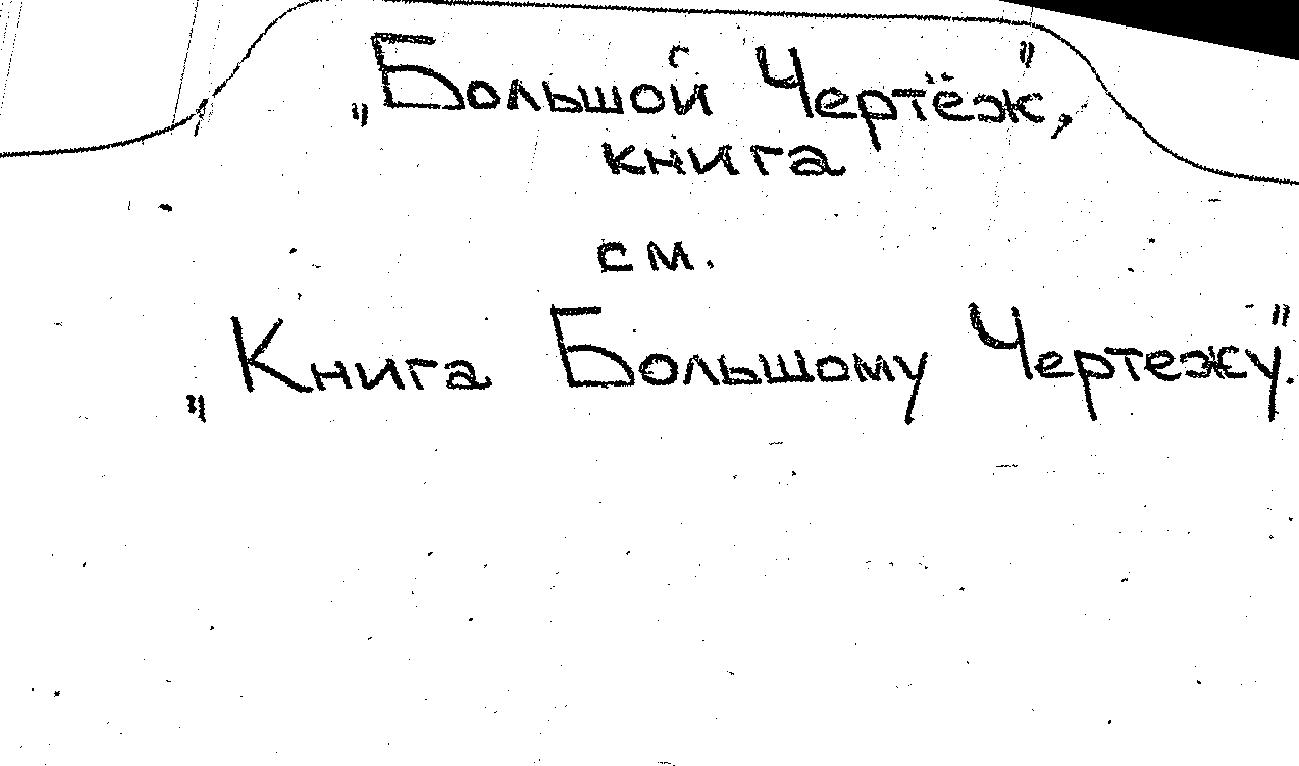 „Большой Чертёж",
книга
см.
„Книга Большому Чертежу".